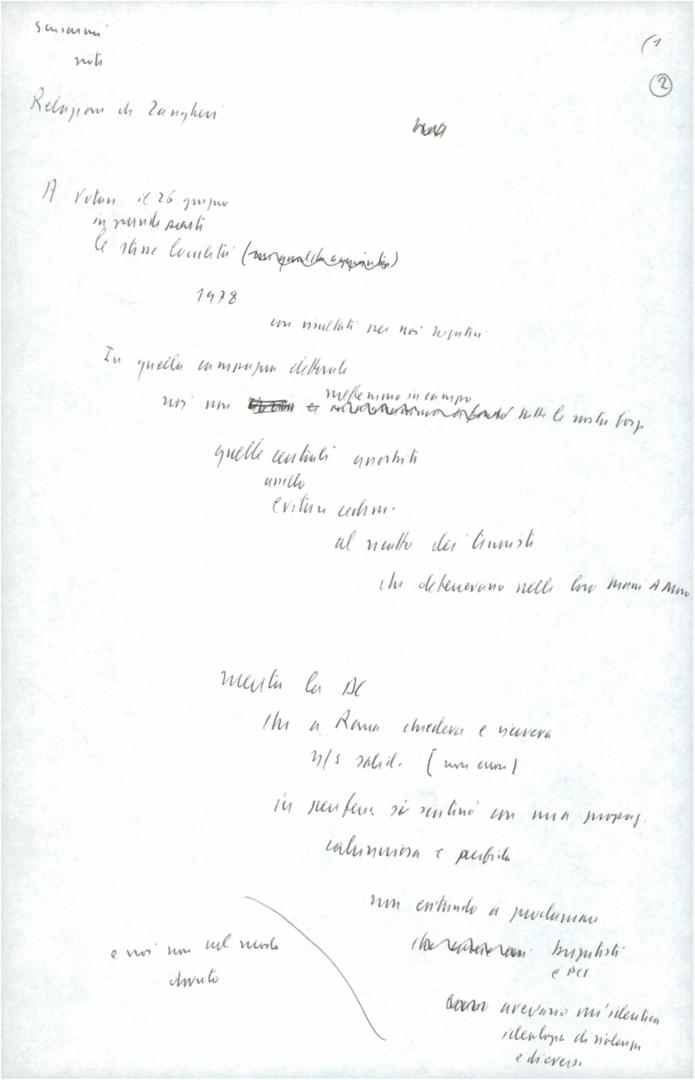 note
(1
2
Relazione di Zangheri
A votare il 26 giugno
in grande parte
le stesse località (
1978
con risultati per noi negativi
In quella campagna elettorale
noi non mettemmo in campo tutte le nostre forze
quelle centrali
anche
evitare cedim.
al ricatto dei terroristi
che detenevano nelle loro mani A Moro
mentre la DC
che a Roma chiedeva e riceveva
n/s solid. (non errore)
in periferia si scatenò con una propag.
calunniosa e perfida
non esitando a proclamare
che brigatisti
e PCI
avevano un'identica
ideologia di violenza
e diversi
e noi non nel modo
dovuto